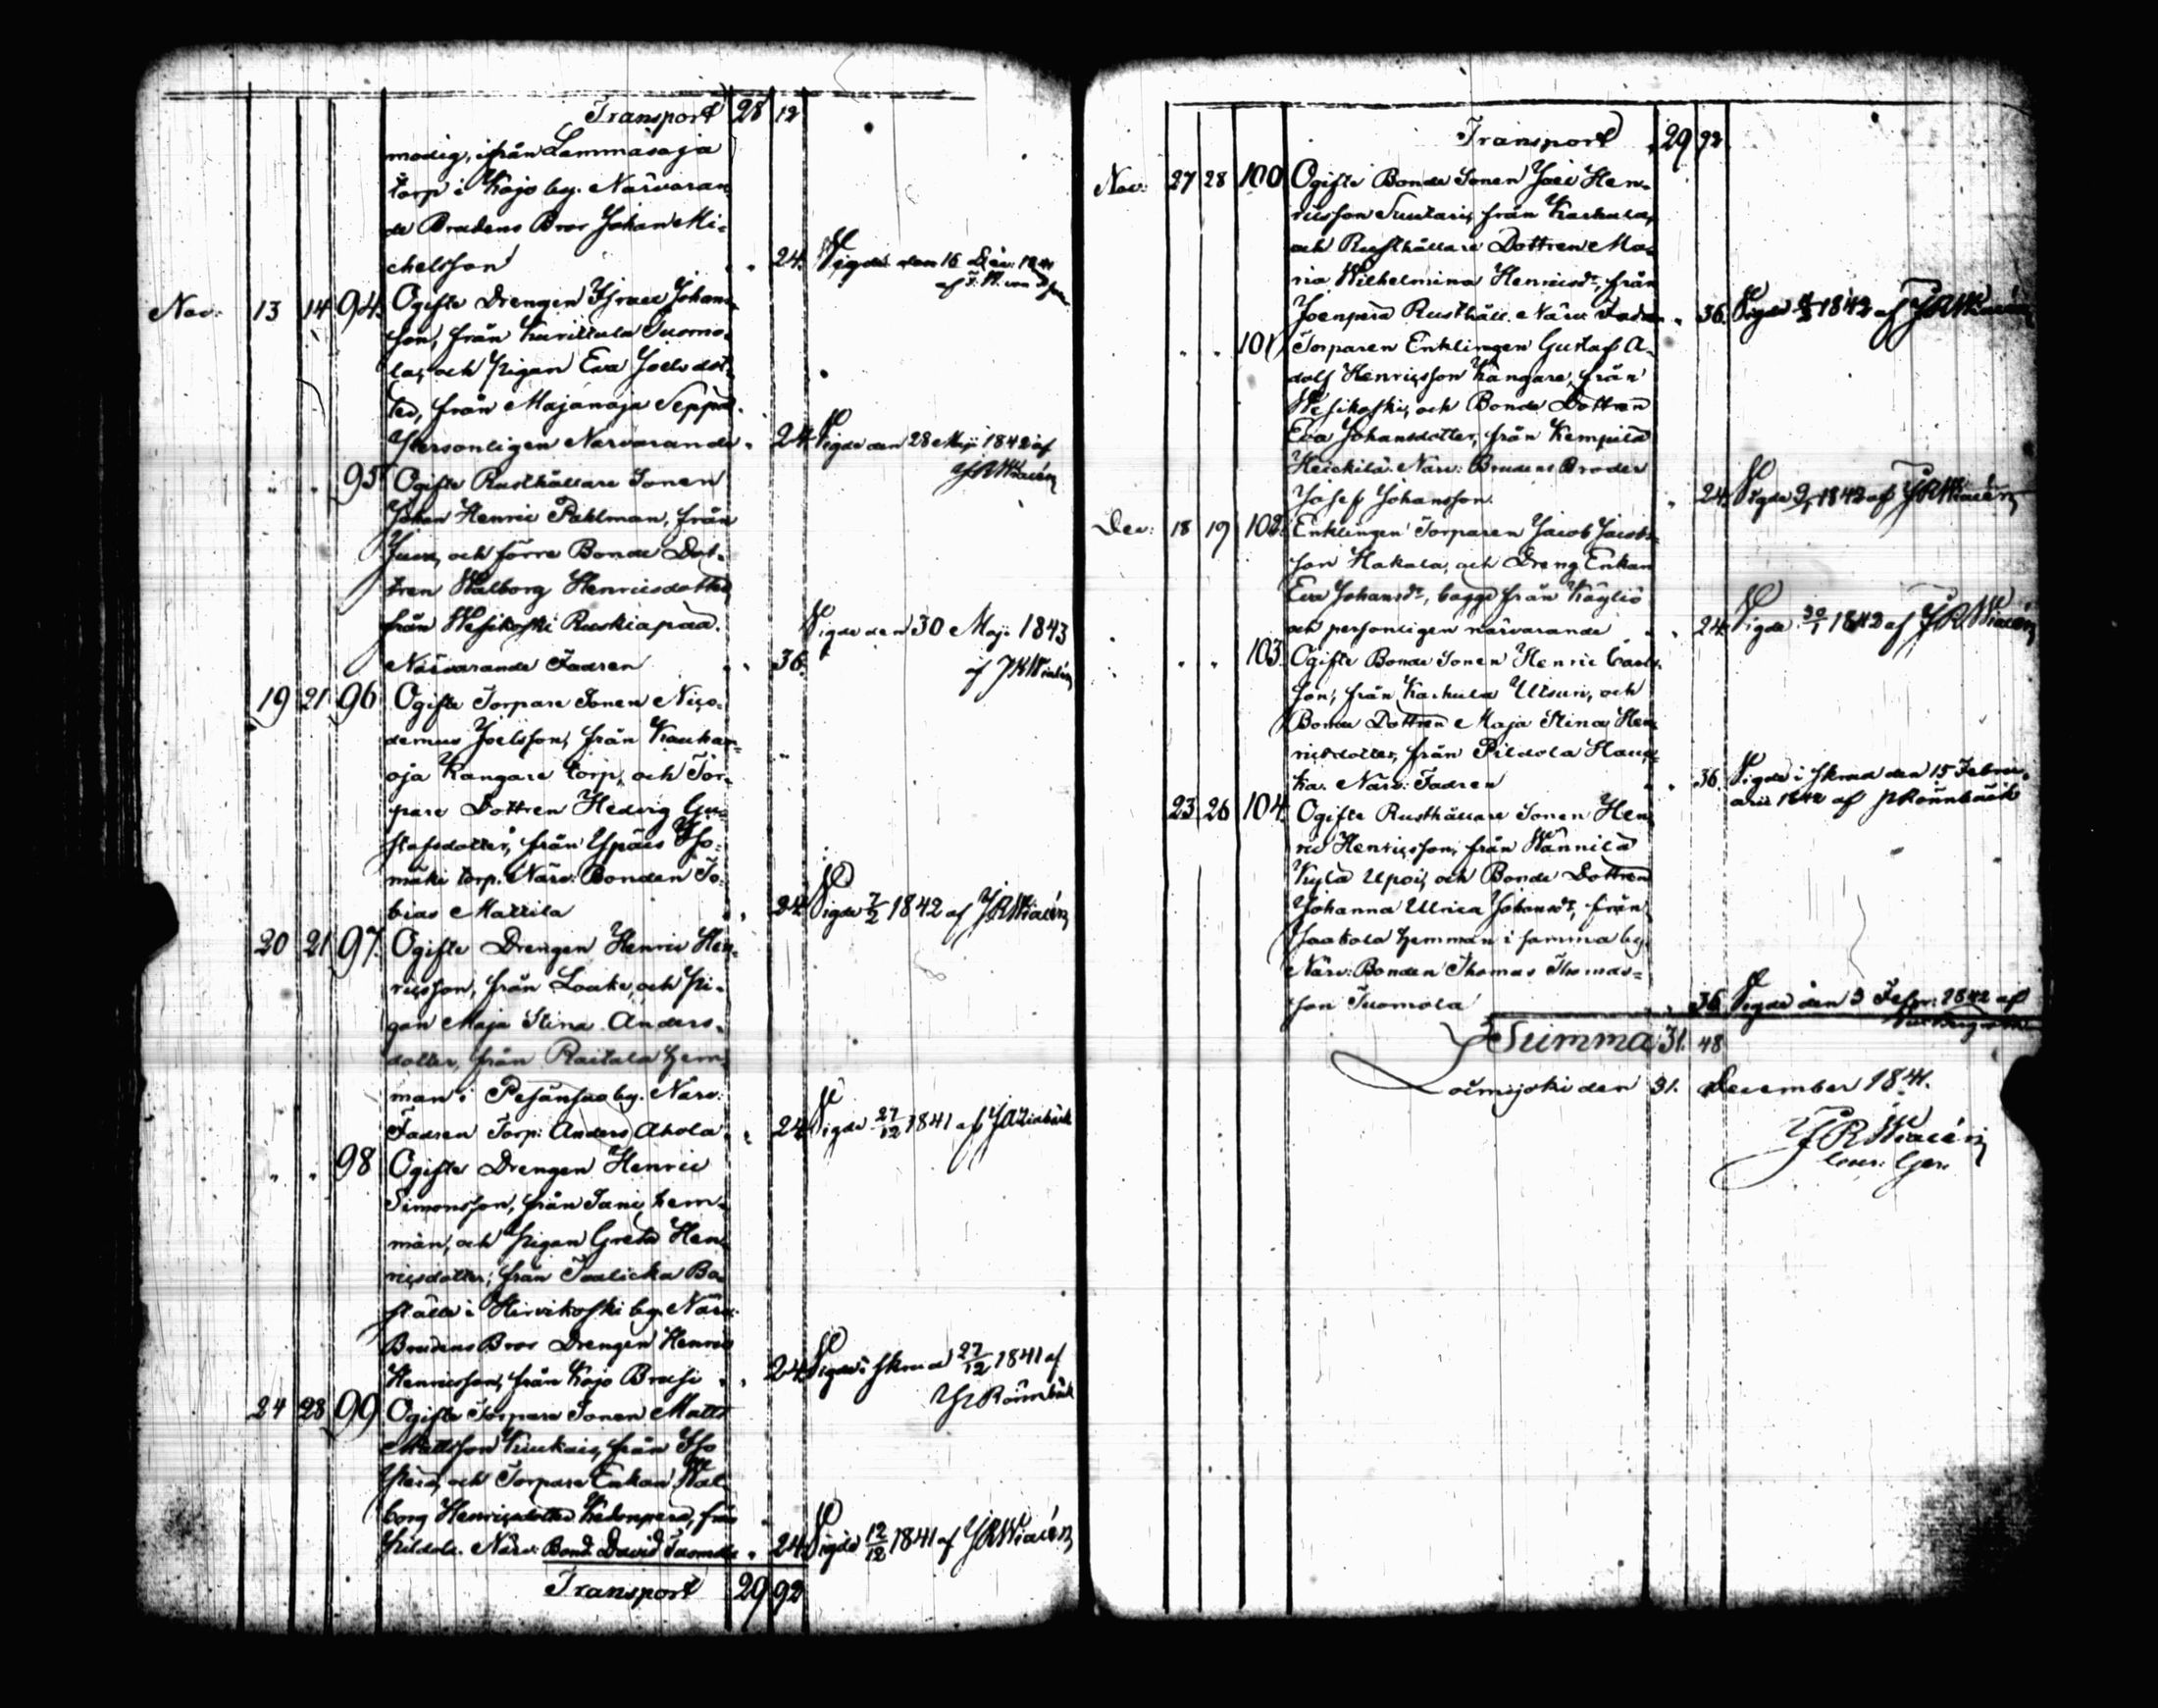 Transport 28 12
modig, ifrån Lammasoja
torp i Kojo by. Närvaran
de Brudens Bror Johan Mi-
chelsson " 24. Vigde den 16 Dec: 1841
af F. W. von
Nov: 13 14 94. Ogifte Drengen Israel Johans-
son, från Kurittula Tuomo-
la, och Pigan Eva Joelsdot-
ter, från Majanoja Seppä.
Personligen Närvarande " 24. Vigde den 28 Maji 1842 af
J R Wiacén
" " 95 Ogifte Rusthållare Sonen
Johan Henric Pahlman, från
och förre Bonde Dot-
tren Walborg Henricsdotter
från Wesikoski Ruskiapää. Vigde den 30 Maji 1843
Närvarande Fadren " 36. af J R Wiacén
19 21 96 Ogifte Torpare Sonen Nico-
demus Joelsson, från Kauhan-
oja Kangare torp, och Tor-
pare Dottren Hedvig Gu-
stafsdotter, från Ypäis Iso-
mäki torp. Närv: Bonden To-
bias Mattila " 24. Vigde 7/2 1842 af J R Wiacén
20 21 97. Ogifte Drengen Henric Hen-
ricsson, från Louke, och Pi-
gan Maja Stina Anders-
dotter, från Raitala hem-
man i Pesänsuo by. Närv:
Fadren Torp: Anders Ahola " 24. Vigde 27/12 1841 af
" " 98 Ogifte Drengen Henric
Simonsson, från Suni hem-
man, och Pigan Greta Hen-
ricsdotter, från Taalicka Bo-
ställe i Hirvikoski by. Närv:
Brudens Bror Drengen Henric
Henricsson, från Kojo Brusi " " 24. Vigde i Skrud 27/12 1841 af
Rönnbäck
24 28 99 Ogifte Torpare Sonen Matts
Mattsson Kiukais, från Iso
Perä, och Torpare Enkan Wal-
borg Henricsdotter Kedonperä, från
Pildola. Närv: Bond. David Tuomola " 24. Vigde 12/12 1841 af J R Wiacén
Transport 29 92
Transport 29 92.
Nov: 27 28 100 Ogifte Bonde Sonen Joel Hen-
ricsson Suutari, från Karhula,
och Rusthållare Dottren Ma-
ria Wilhelmina Henricsdr, från
Joenperä Rusthåll. Närv: Fadren " 36. Vigde 1842 af J R Wiacén
" " 101 Torparen Enklingen Gustaf A-
dolf Henricsson Kangare, från
Wesikoski, och Bonde Dottren
Eva Johansdotter, från Kempilä
Heickilä. Närv: Brudens Broder
Josef Johansson. " 24. Vigde 1842 af J R Wiacén
Dec: 18 19 102. Enklingen Torparen Jacob Jacobs-
son Hakala, och Dreng Enkan
Eva Johansdr, bägge från Kögliö
och personligen närvarande " 24. Vigde 30/1 1842 af J R Wiacén
" " 103. Ogifte Bonde Sonen Henric Carls-
son, från Karhula Uusuri, och
Bonde Dottren Maja Stina Hen-
ricsdotter, från Pildola Hauk-
ka. Närv: Fadren " 36 Vigde i Skrud den 15 Febru-
arii 1842 af Rönnbäck
23 26 104. Ogifte Rusthållare Sonen Hen-
ric Henricsson, från Wännilä
Kylä Upoi, och Bonde Dottren
Johanna Ulrica Johansdr, från
Jaakola hemman i samma by.
Närv: Bonden Thomas Thomas-
son Tuomola " 36 Vigde den 3 Febr: 1842 af
Summa 31. 48
Loimijoki den 31. December 1841.
J R Wiacén